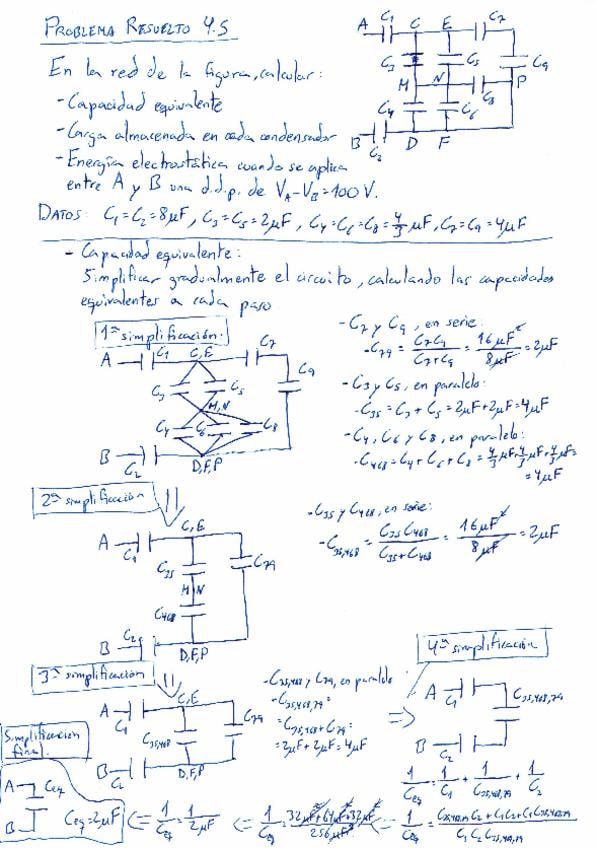 PROBLEMA RESUELTO 4.5
En la red de la figura, calcular:
- Capacidad equivalente
- Carga almacenada en cada condensador
- Energía electrostática cuando se aplica
entre A y B una d.d.p. de V_A - V_B = 100 V.
A C_1 C E C_7
C_3 C_5 C_9
M N C_8 P
C_4 C_6
B C_2 D F
DATOS: C_1 = C_2 = 8μF, C_3 = C_5 = 2μF, C_4 = C_6 = C_8 = 4/3 μF, C_7 = C_9 = 4μF
- Capacidad equivalente:
Simplificar gradualmente el circuito, calculando las capacidades
equivalentes a cada paso
1ª simplificación.
A C_1 C,E C_7
C_9
C_3 C_5
M,N
C_4 C_6 C_8
B C_2 D,F,P
- C_7 y C_9, en serie:
- C_79 = C_7 C_9 / C_7 + C_9 = 16μF² / 8μF = 2μF
- C_3 y C_5, en paralelo:
- C_35 = C_3 + C_5 = 2μF + 2μF = 4μF
- C_4, C_6 y C_8, en paralelo:
- C_468 = C_4 + C_6 + C_8 = 4/3 μF + 4/3 μF + 4/3 μF =
= 4μF
2ª simplificación
C,E
A C_1
C_35 C_79
M N
C_468
B C_2 D,F,P
- C_35 y C_468, en serie:
- C_35,468 = C_35 C_468 / C_35 + C_468 = 16μF² / 8μF = 2μF
3ª simplificación
C,E
A C_1
C_35,468 C_79
B C_2 D,F,P
- C_35,468 y C_79, en paralelo
- C_35,468,79 =
= C_35,468 + C_79 =
= 2μF + 2μF = 4μF
=>
4ª simplificación
A C_1
C_35,468,79
B C_2
1/C_eq = 1/C_1 + 1/C_35,468,79 + 1/C_2
<= 1/C_eq = C_35,468,79 C_2 + C_1 C_2 + C_1 C_35,468,79 / C_1 C_2 C_35,468,79
<= 1/C_eq = 32μF² + 64μF² + 32μF² / 256μF³
<= 1/C_eq = 1/2μF
Simplificación
final.
A C_eq
B
C_eq = 2μF